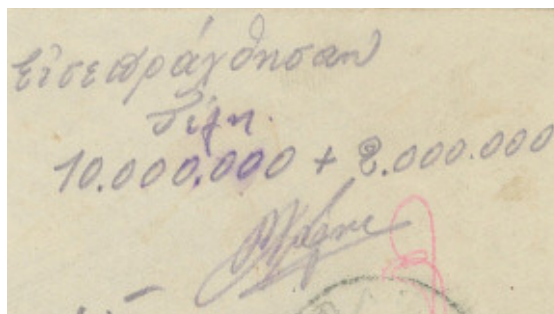 Εἰσεπράχθησαν
Τέλη.
10.000.000 + 2.000.000